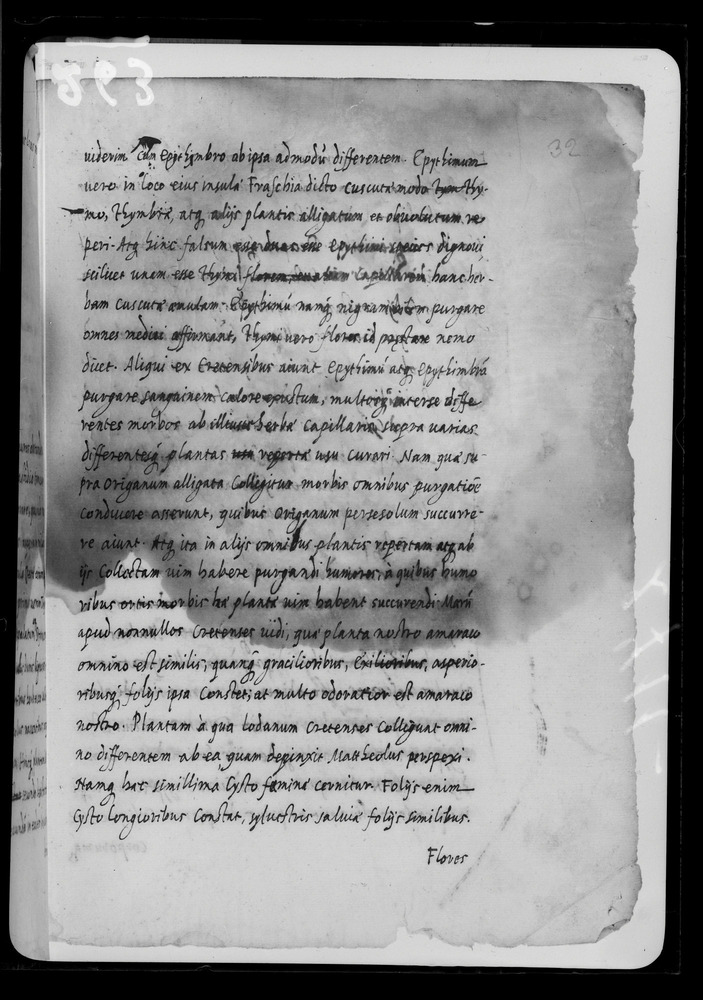 293
32
uiderim cum Epythymbro ab ipsa admodũ differentem. Epythimum
uero in loco eius insulæ Fraschia dicto cuscutæ modo Thy-
mo, Thymbræ, atq alijs plantis alligatum et obuolutum re
peri. Atq hinc falsum esse duas esse Epythimi species dignoui
scilicet unam esse Thymi hanc her-
bam cuscutæ æmulam. Epythimũ namq nigram purgare
omnes medici affirmant, Thymi uero flores id præstare nemo
dicet. Aliqui ex Cretensibus aiunt Epythimũ atq Epythimbrũ
purgare sanguinem calore exustum, multosq interse diffe
rentes morbos ab illius herbæ Capillaris supra uarias
differentesq plantas repertæ usu curari. Nam quæ su-
pra origanum alligata Colligitur morbis omnibus purgatiõe
Conducere asserunt, quibus origanum per se solum succurre-
re aiunt. Atq ita in alijs omnibus plantis repertam atq ab
ijs Collectam uim habere purgandi humores, à quibus humo
ribus ortis morbis hæ plantæ uim habent succurendi. Marũ
apud nonnullos Cretenses uidi, quæ planta nostro amaraco
omnino est similis, quanq gracilioribus, Exilioribus, asperio-
ribusq folijs ipsa Constet, at multo odoratior est amaraco
nostro. Plantam à qua lodanum Cretenses Colligunt omni-
no differentem ab ea quam depinxit Mattheolus perspexi.
Namq hæc simillima Cysto fæminæ cernitur. Folijs enim
Cysto longioribus Constat, syluestris saluiæ folijs similibus.
Flores